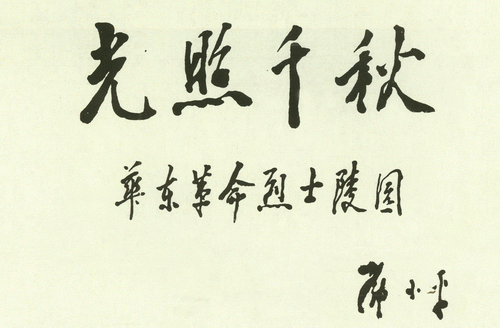 光照千秋
華东革命烈士陵園
小平